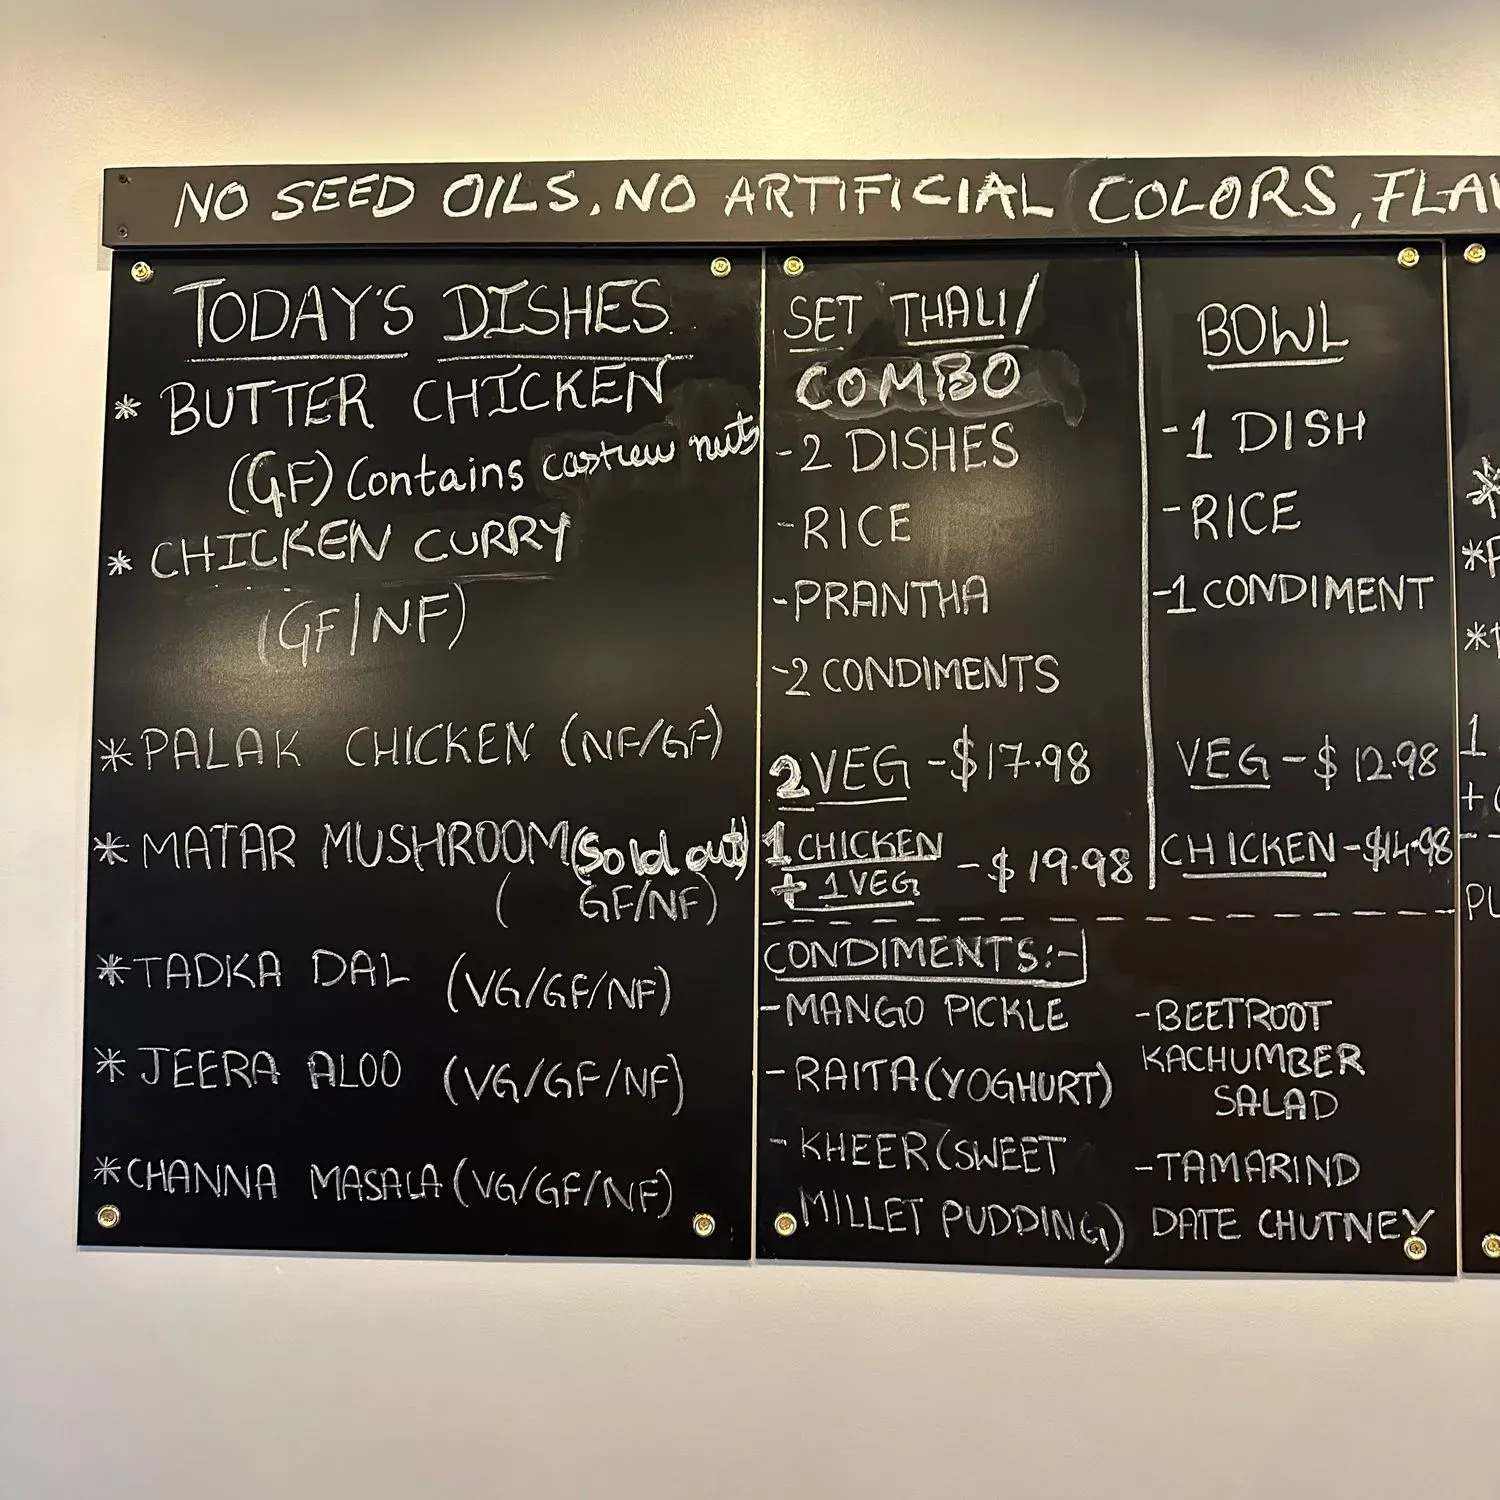 NO SEED OILS, NO ARTIFICIAL COLORS, FLAV
TODAY'S DISHES
* BUTTER CHICKEN
(GF) Contains cashew nuts
* CHICKEN CURRY
(GF/NF)
* PALAK CHICKEN (NF/GF)
* MATAR MUSHROOM (Sold out)
( GF/NF)
* TADKA DAL (VG/GF/NF)
* JEERA ALOO (VG/GF/NF)
* CHANNA MASALA (VG/GF/NF)
SET THALI/
COMBO
- 2 DISHES
- RICE
- PRANTHA
- 2 CONDIMENTS
2 VEG - $17.98
1 CHICKEN
+ 1 VEG - $19.98
BOWL
- 1 DISH
- RICE
- 1 CONDIMENT
VEG - $12.98
CHICKEN - $14.98
CONDIMENTS:-
- MANGO PICKLE
- RAITA (YOGHURT)
- KHEER (SWEET
MILLET PUDDING)
- BEETROOT
KACHUMBER
SALAD
- TAMARIND
DATE CHUTNEY
1
PU